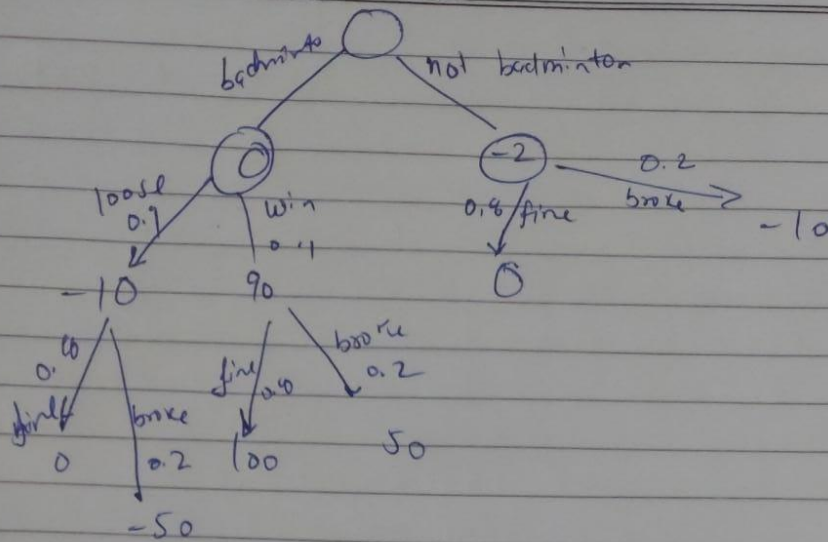 badminto
not badminton
0
-2
0.2
broke
loose
0.9
win
0.1
0.8
fine
-10
-10
90
0
0.8
fine
broke
0.2
fine
0.8
broke
0.2
0
100
50
-50